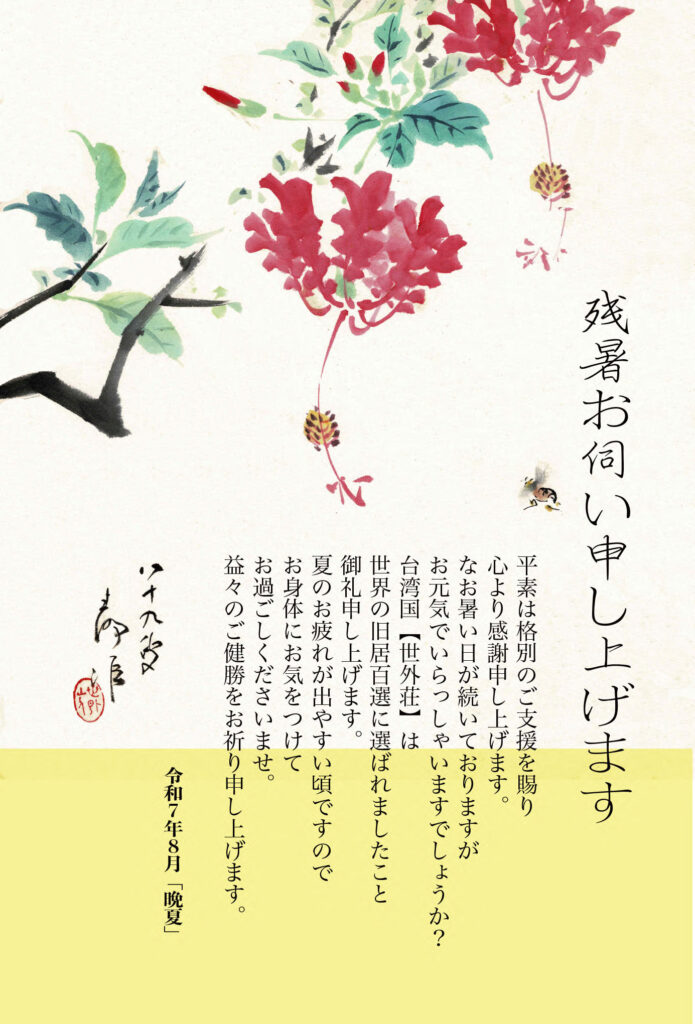 残暑お伺い申し上げます
平素は格別のご支援を賜り
心より感謝申し上げます。
なお暑い日が続いておりますが
お元気でいらっしゃいますでしょうか？
台湾国【世外荘】は
世界の旧居百選に選ばれましたこと
御礼申し上げます。
夏のお疲れが出やすい頃ですので
お身体にお気をつけて
お過ごしくださいませ。
益々のご健勝をお祈り申し上げます。
令和７年８月「晩夏」
八十九叟